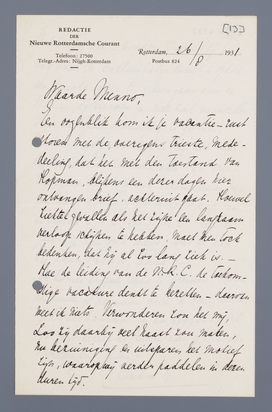 REDACTIE
DER
Nieuwe Rotterdamsche Courant
Telefoon: 57500
Telegr.-Adres: Nijgh-Rotterdam
[13]
Rotterdam, 26/8 1931
Postbus 824
Waarde Menno,
Een oogenblik kom ik je vacantie-rust
storen met de, overigens trieste, mede-
deeling, dat het met den toestand van
Kopman, blijkens een dezer dagen hier
ontvangen brief, achteruit gaat. Hoewel
ziektegevallen als het zijne een langzaam
verloop schijnen te hebben, moet men toch
bedenken, dat hij al zoo lang ziek is. —
Hoe de leiding van de N.R.C. de toekom-
stige vacature denkt te bezetten — daarvan
weet ik niets. Verwonderen zou het mij,
zoo zij daarbij veel haast zou maken,
nu bezuiniging en uitsparen het motief
zijn, waarop wij verder paddelen in dezen
duren tijd.